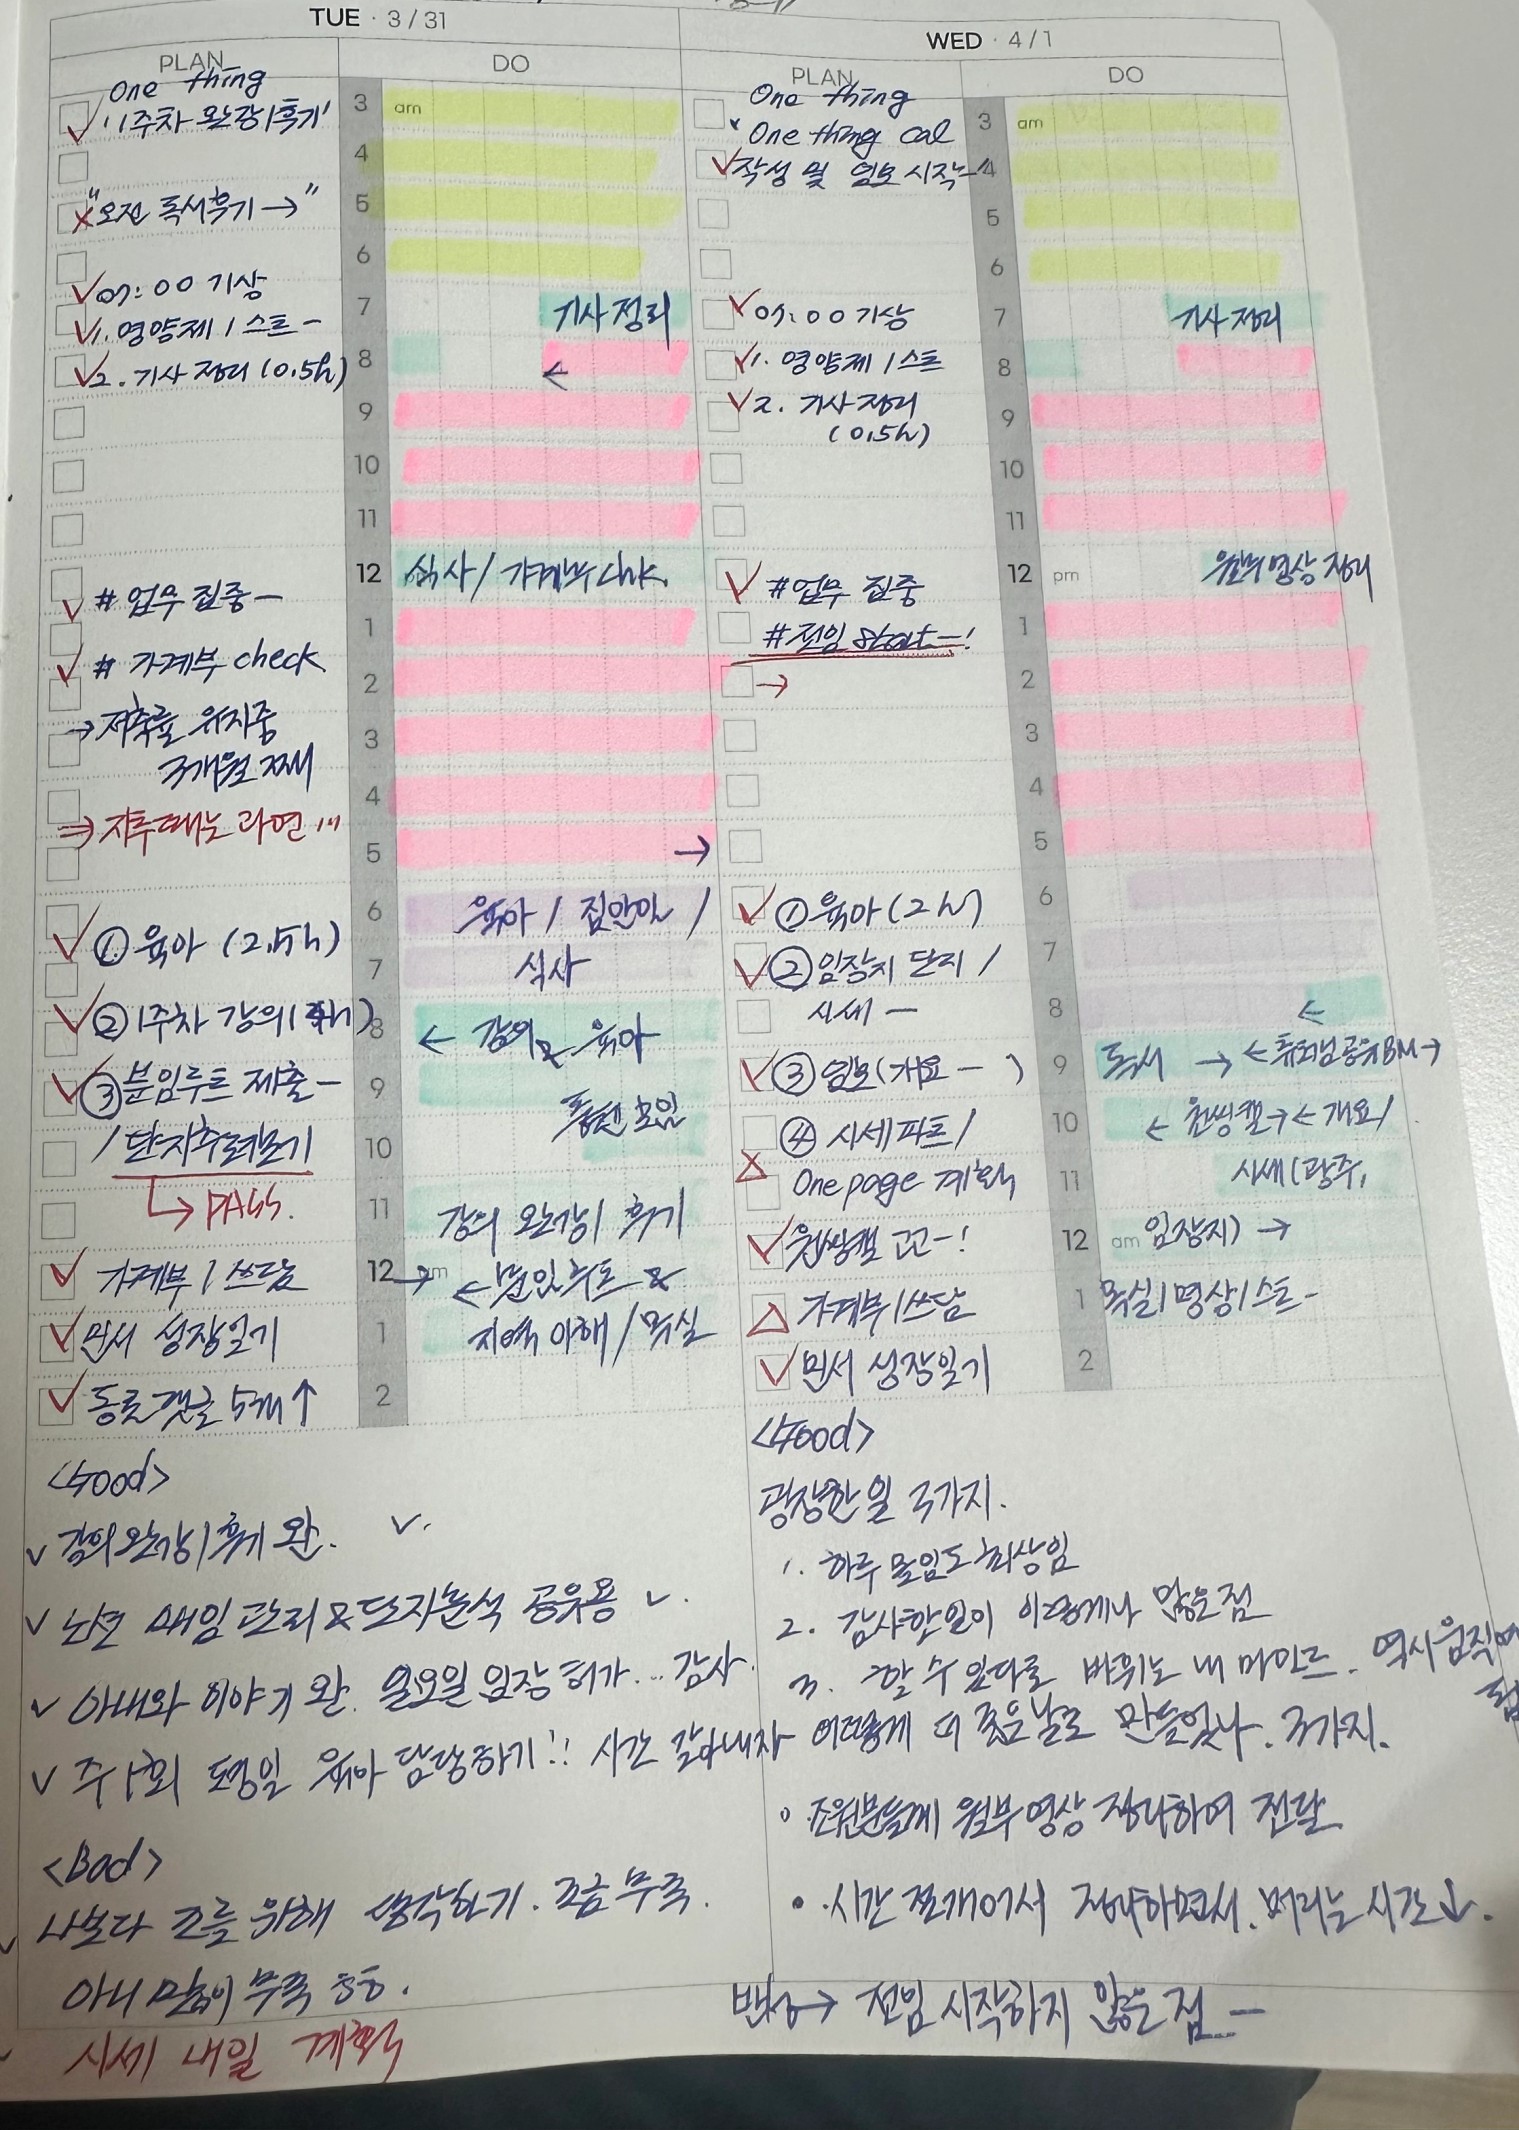 TUE · 3 / 31
PLAN
DO
One thing
"1주차 완강/후기"
"오전 독서후기 →"
07:00 기상
1. 영양제 / 스트 -
2. 기사 정리 (0.5h)
# 업무 집중 -
# 가계부 check
→ 저축률 유지중
3개월 째
⇒ 지투때는 과연 ...
① 육아 (2.5h)
② 1주차 강의
③ 분임루트 제출 -
/ 단지추려보기
→ PASS.
가계부 / 쓰담
민서 성장일기
동료 댓글 5개 ↑
3 am
4
5
6
7 기사 정리
8 ←
9
10
11
12 식사 / 가계부 chk.
1
2
3
4
5 →
6 육아 / 집안일 /
7 식사
8 ← 강의 & 육아
9
모임
10
11 강의 완강 / 후기
12 am → ← 분임루트 &
1 지역 이해 / 목실
2
<Good>
✓ 강의 완강/후기 완. ✓.
✓ 매임 관리 & 단지분석 공유용 ✓.
✓ 아내와 이야기 완. 일요일 임장 허가... 감사.
✓ 주 1회 평일 육아 담당하기!! 시간 갈아내자
<Bad>
✓ 나보다 그를 위해 생각하기. 조금 부족.
아니 많이 부족
✓ 시세 내일 계획
WED · 4 / 1
PLAN
DO
One thing
" One thing cal
작성 및 임보 시작-"
07:00 기상
1. 영양제 / 스트
2. 기사 정리
(0.5h)
# 업무 집중
# 전임 start -!
→
① 육아 (2h)
② 임장지 단지 /
시세 -
③ 임보 (개요 - )
④ 시세파트 /
One page 계획
원씽캘 고고-!
가계부 / 쓰담
민서 성장일기
3 am
4
5
6
7 기사 정리
8
9
10
11
12 pm 월부영상 정리
1
2
3
4
5
6
7
8 ←
9 독서 → ← 공유 BM →
10 ← 원씽캘 → ← 개요 /
11 시세 (광주,
12 am 임장지) →
1 목실 / 명상 / 스트 -
2
<Good>
굉장한 일 3가지.
1. 하루 몰입도 최상임
2. 감사한일이 이렇게나 많은 점
3. 할 수 있다로 바뀌는 내 마인드. 역시 움직여
어떻게 더 좋은 날로 만들었나. 3가지.
◦ 조원분들께 월부영상 정리하여 전달
• 시간 쪼개어서 정리하면서. 버리는 시간 ↓.
반성 → 전임 시작하지 않은 점 -